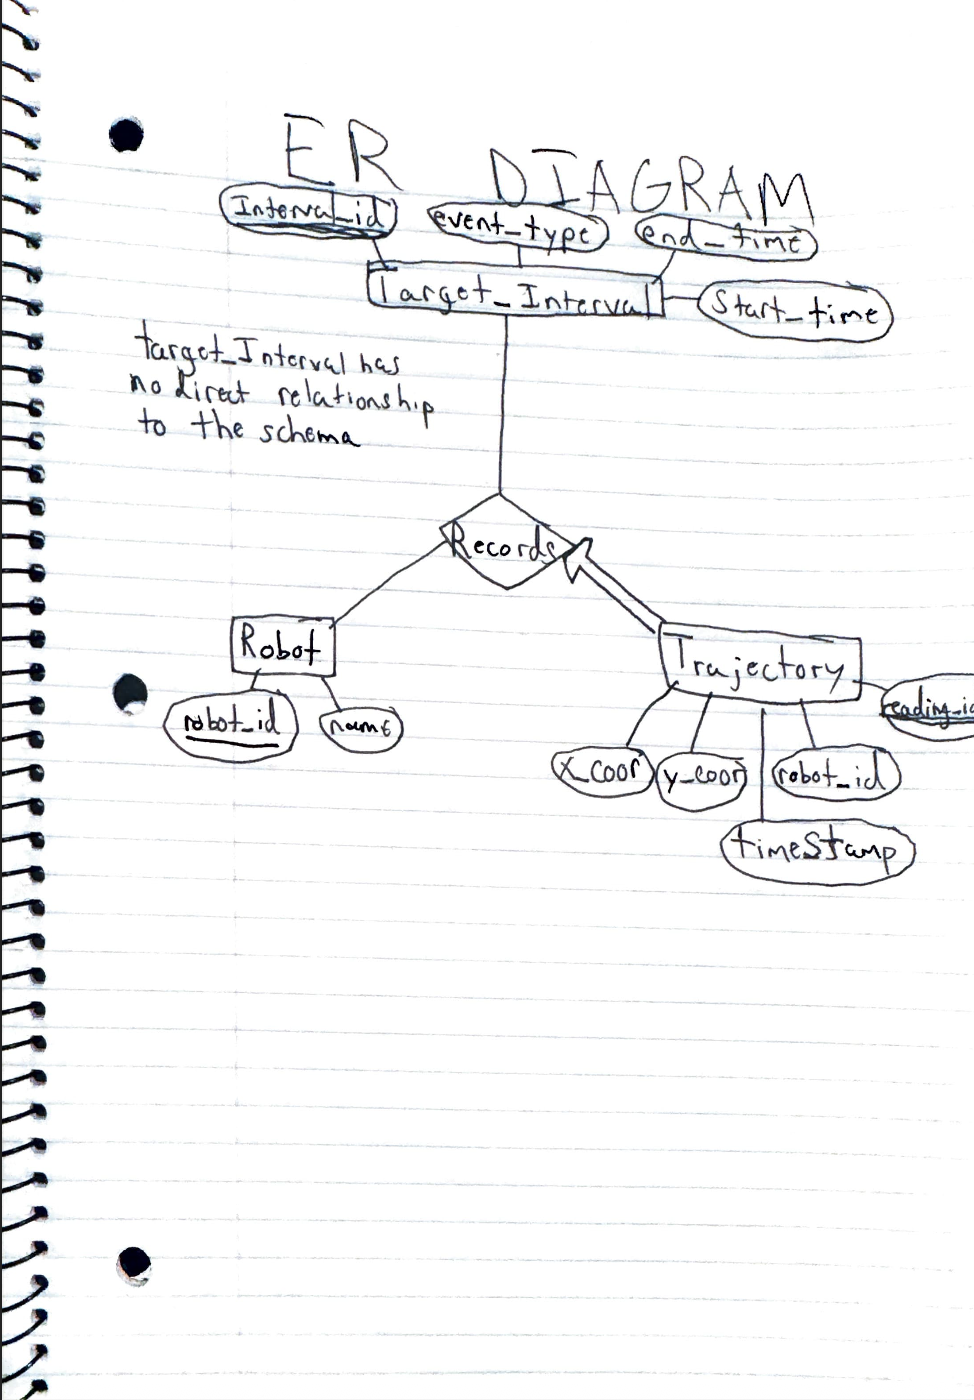 ER DIAGRAM
Interval_id event_type end_time
Target_Interval
Start_time
target_Interval has
no direct relationship
to the schema
Records
Robot
Trajectory
robot_id name
reading_id
x_coor y_coor robot_id
timeStamp